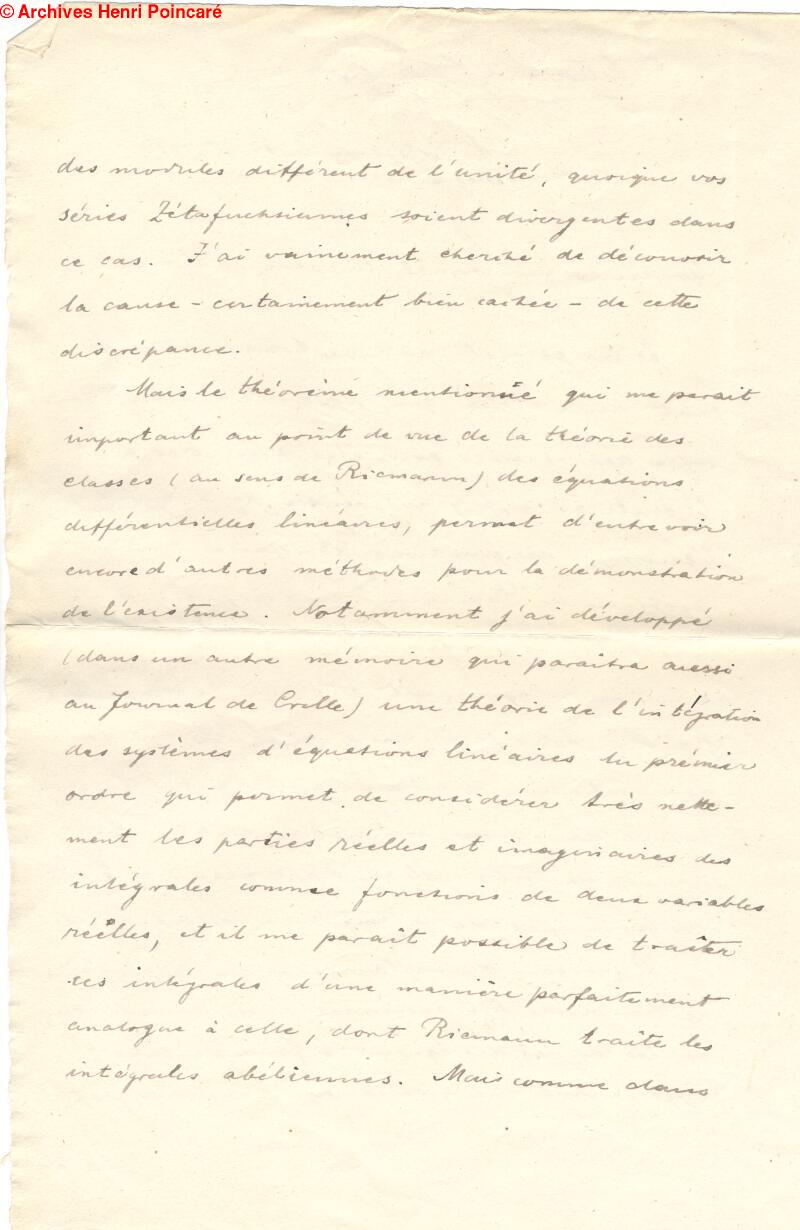 © Archives Henri Poincaré
des modules différent de l'unité, quoique vos
séries Zétafuchsiennes soient divergentes dans
ce cas. J'ai vainement cherché de découvrir
la cause - certainement bien cachée - de cette
discrépance.
Mais le théorème mentionné qui me parait
important au point de vue de la théorie des
classes (au sens de Riemann) des équations
différentielles linéaires, permet d'entrevoir
encore d'autres méthodes pour la démonstration
de l'existence. Notamment j'ai développé
(dans un autre mémoire qui paraîtra aussi
au Journal de Crelle) une théorie de l'intégration
des systèmes d'équations linéaires du prémier
ordre qui permet de considérer très nette-
ment les parties réelles et imaginaires des
intégrales comme fonctions de deux variables
réelles, et il me paraît possible de traîter
ces intégrales d'une manière parfaitement
analogue à celle, dont Riemann traite les
intégrales abéliennes. Mais comme dans